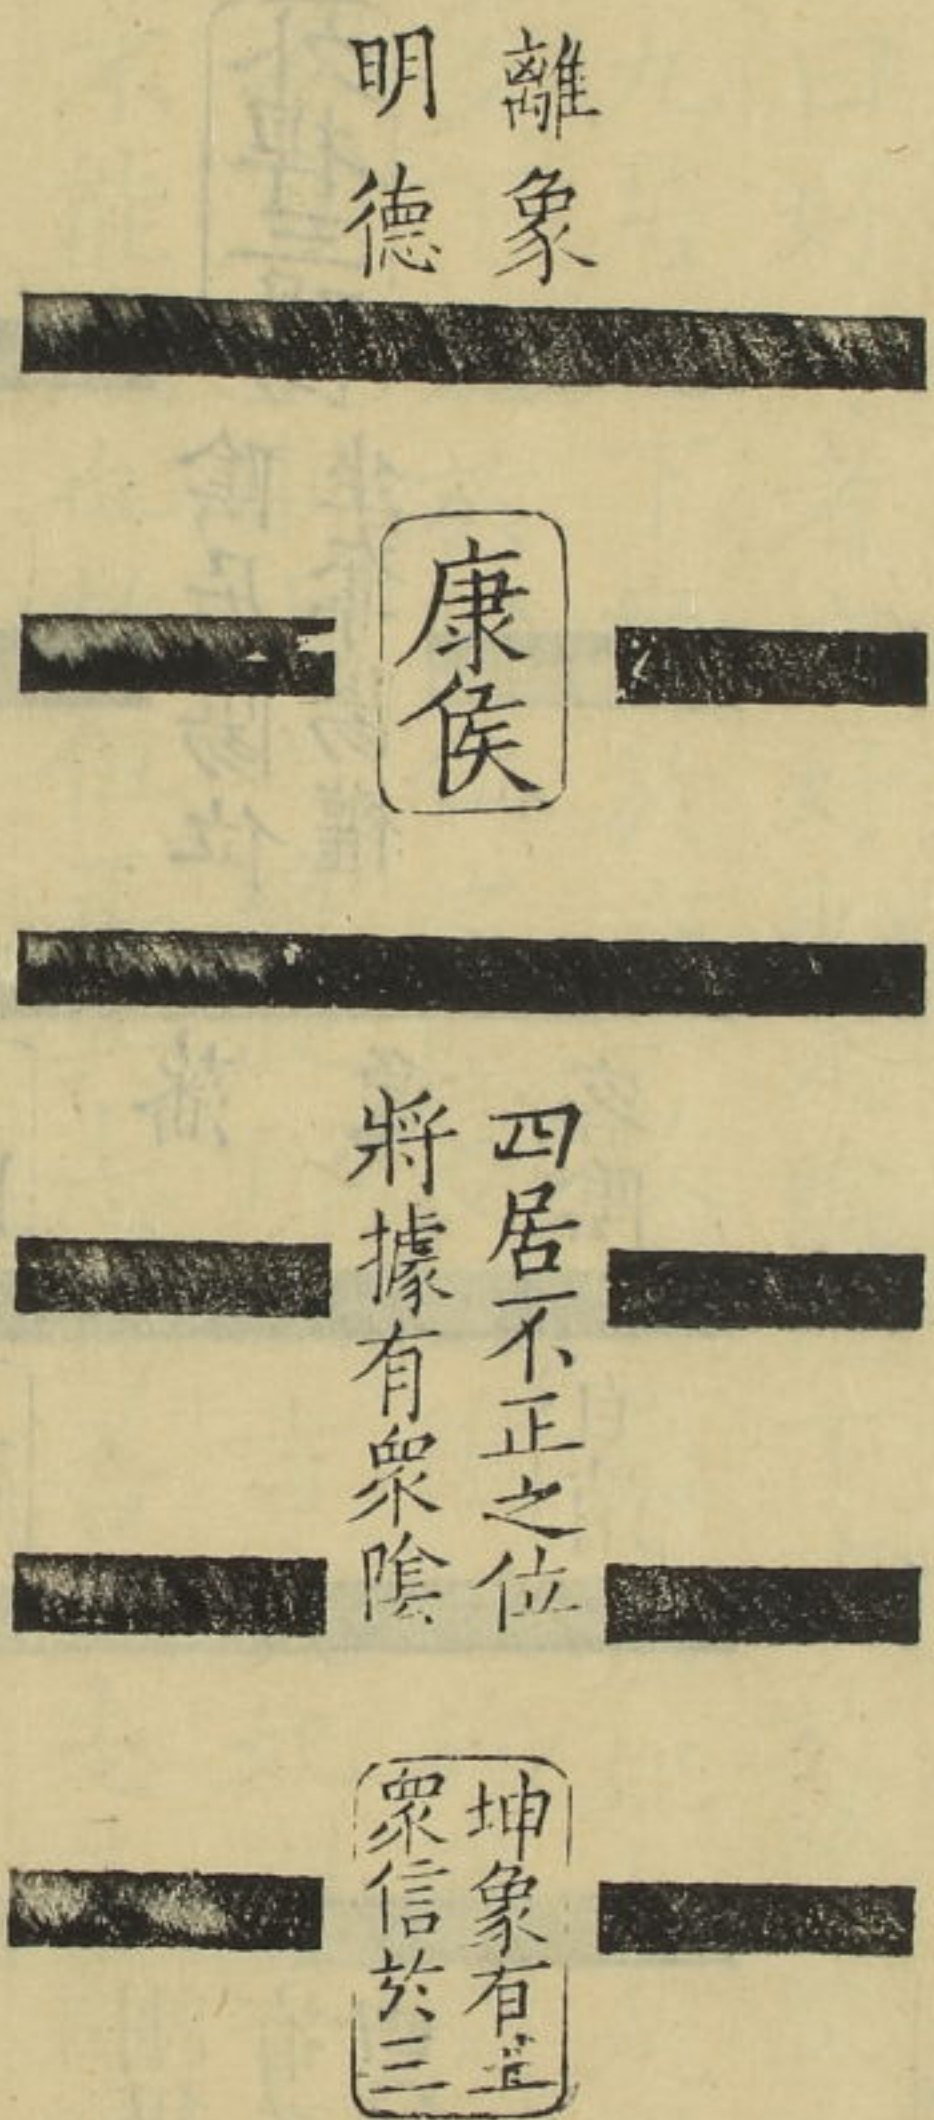 離象
明德
康侯
四居不正之位
將據有衆陰
坤象有
衆信於三